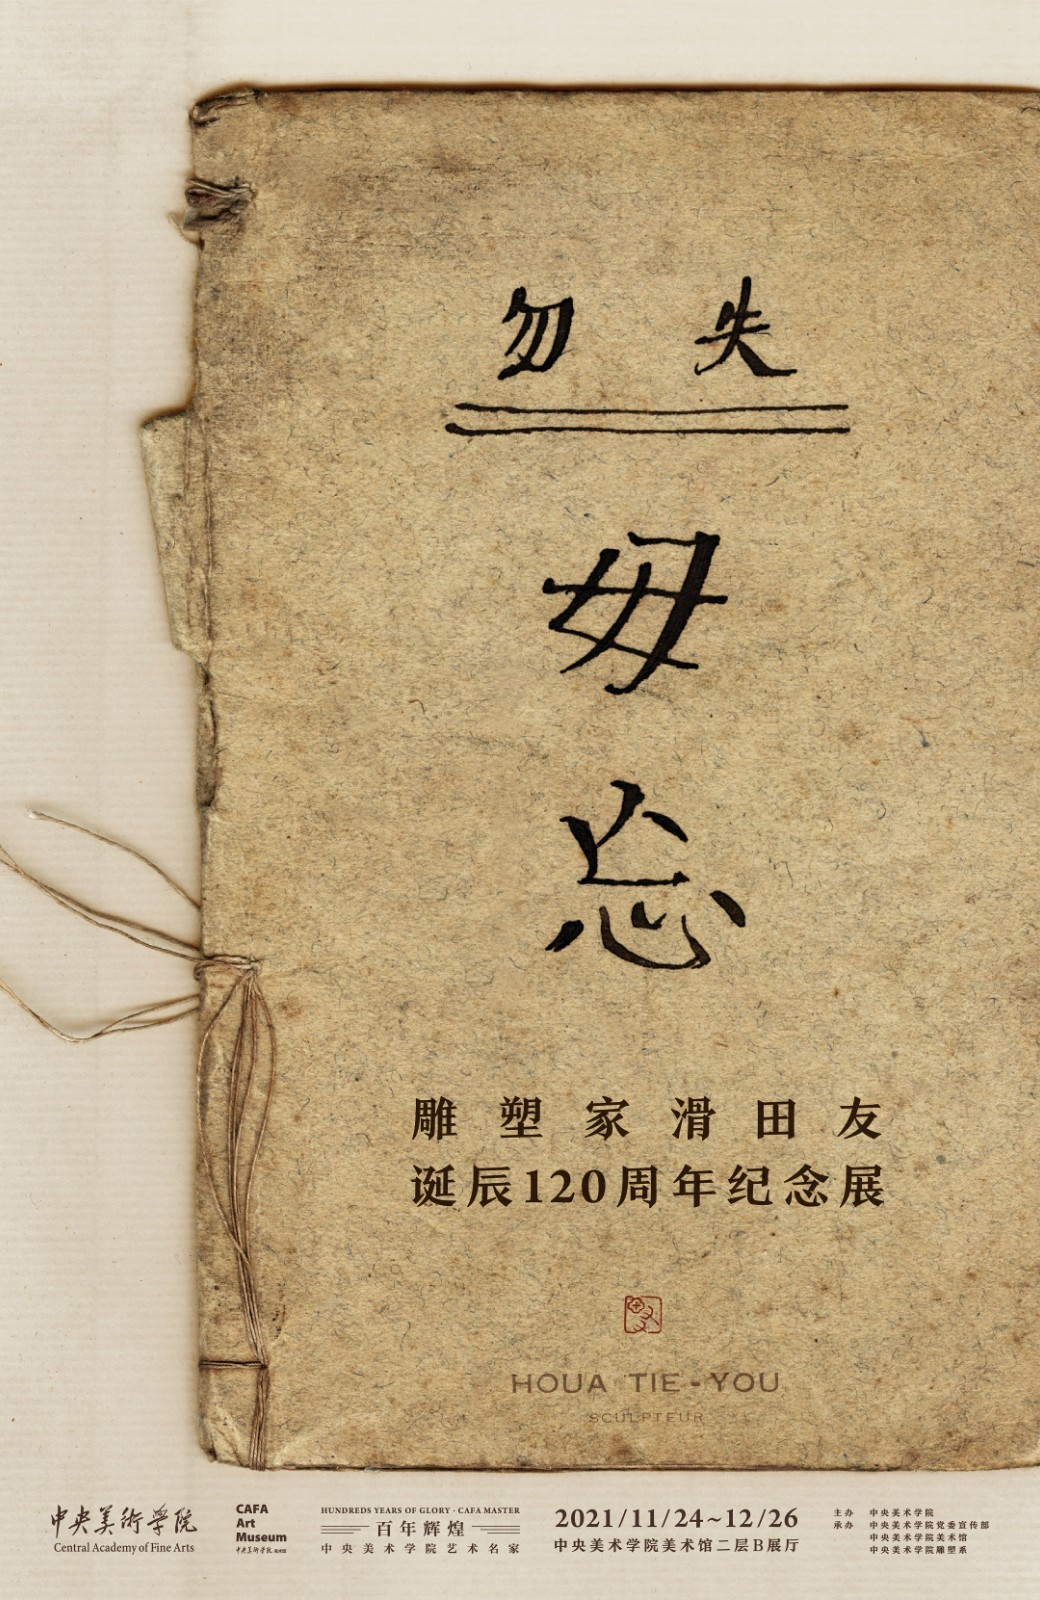 勿 失
毋
忘
雕塑家滑田友
诞辰120周年纪念展
HOUA TIE-YOU
SCULPTEUR
中央美術学院
Central Academy of Fine Arts
CAFA
Art
Museum
中央美術学院 美術館
HUNDREDS YEARS OF GLORY · CAFA MASTER
百年辉煌
中央美术学院艺术名家
2021/11/24~12/26
中央美术学院美术馆二层B展厅
主办 中央美术学院
承办 中央美术学院党委宣传部
中央美术学院美术馆
中央美术学院雕塑系